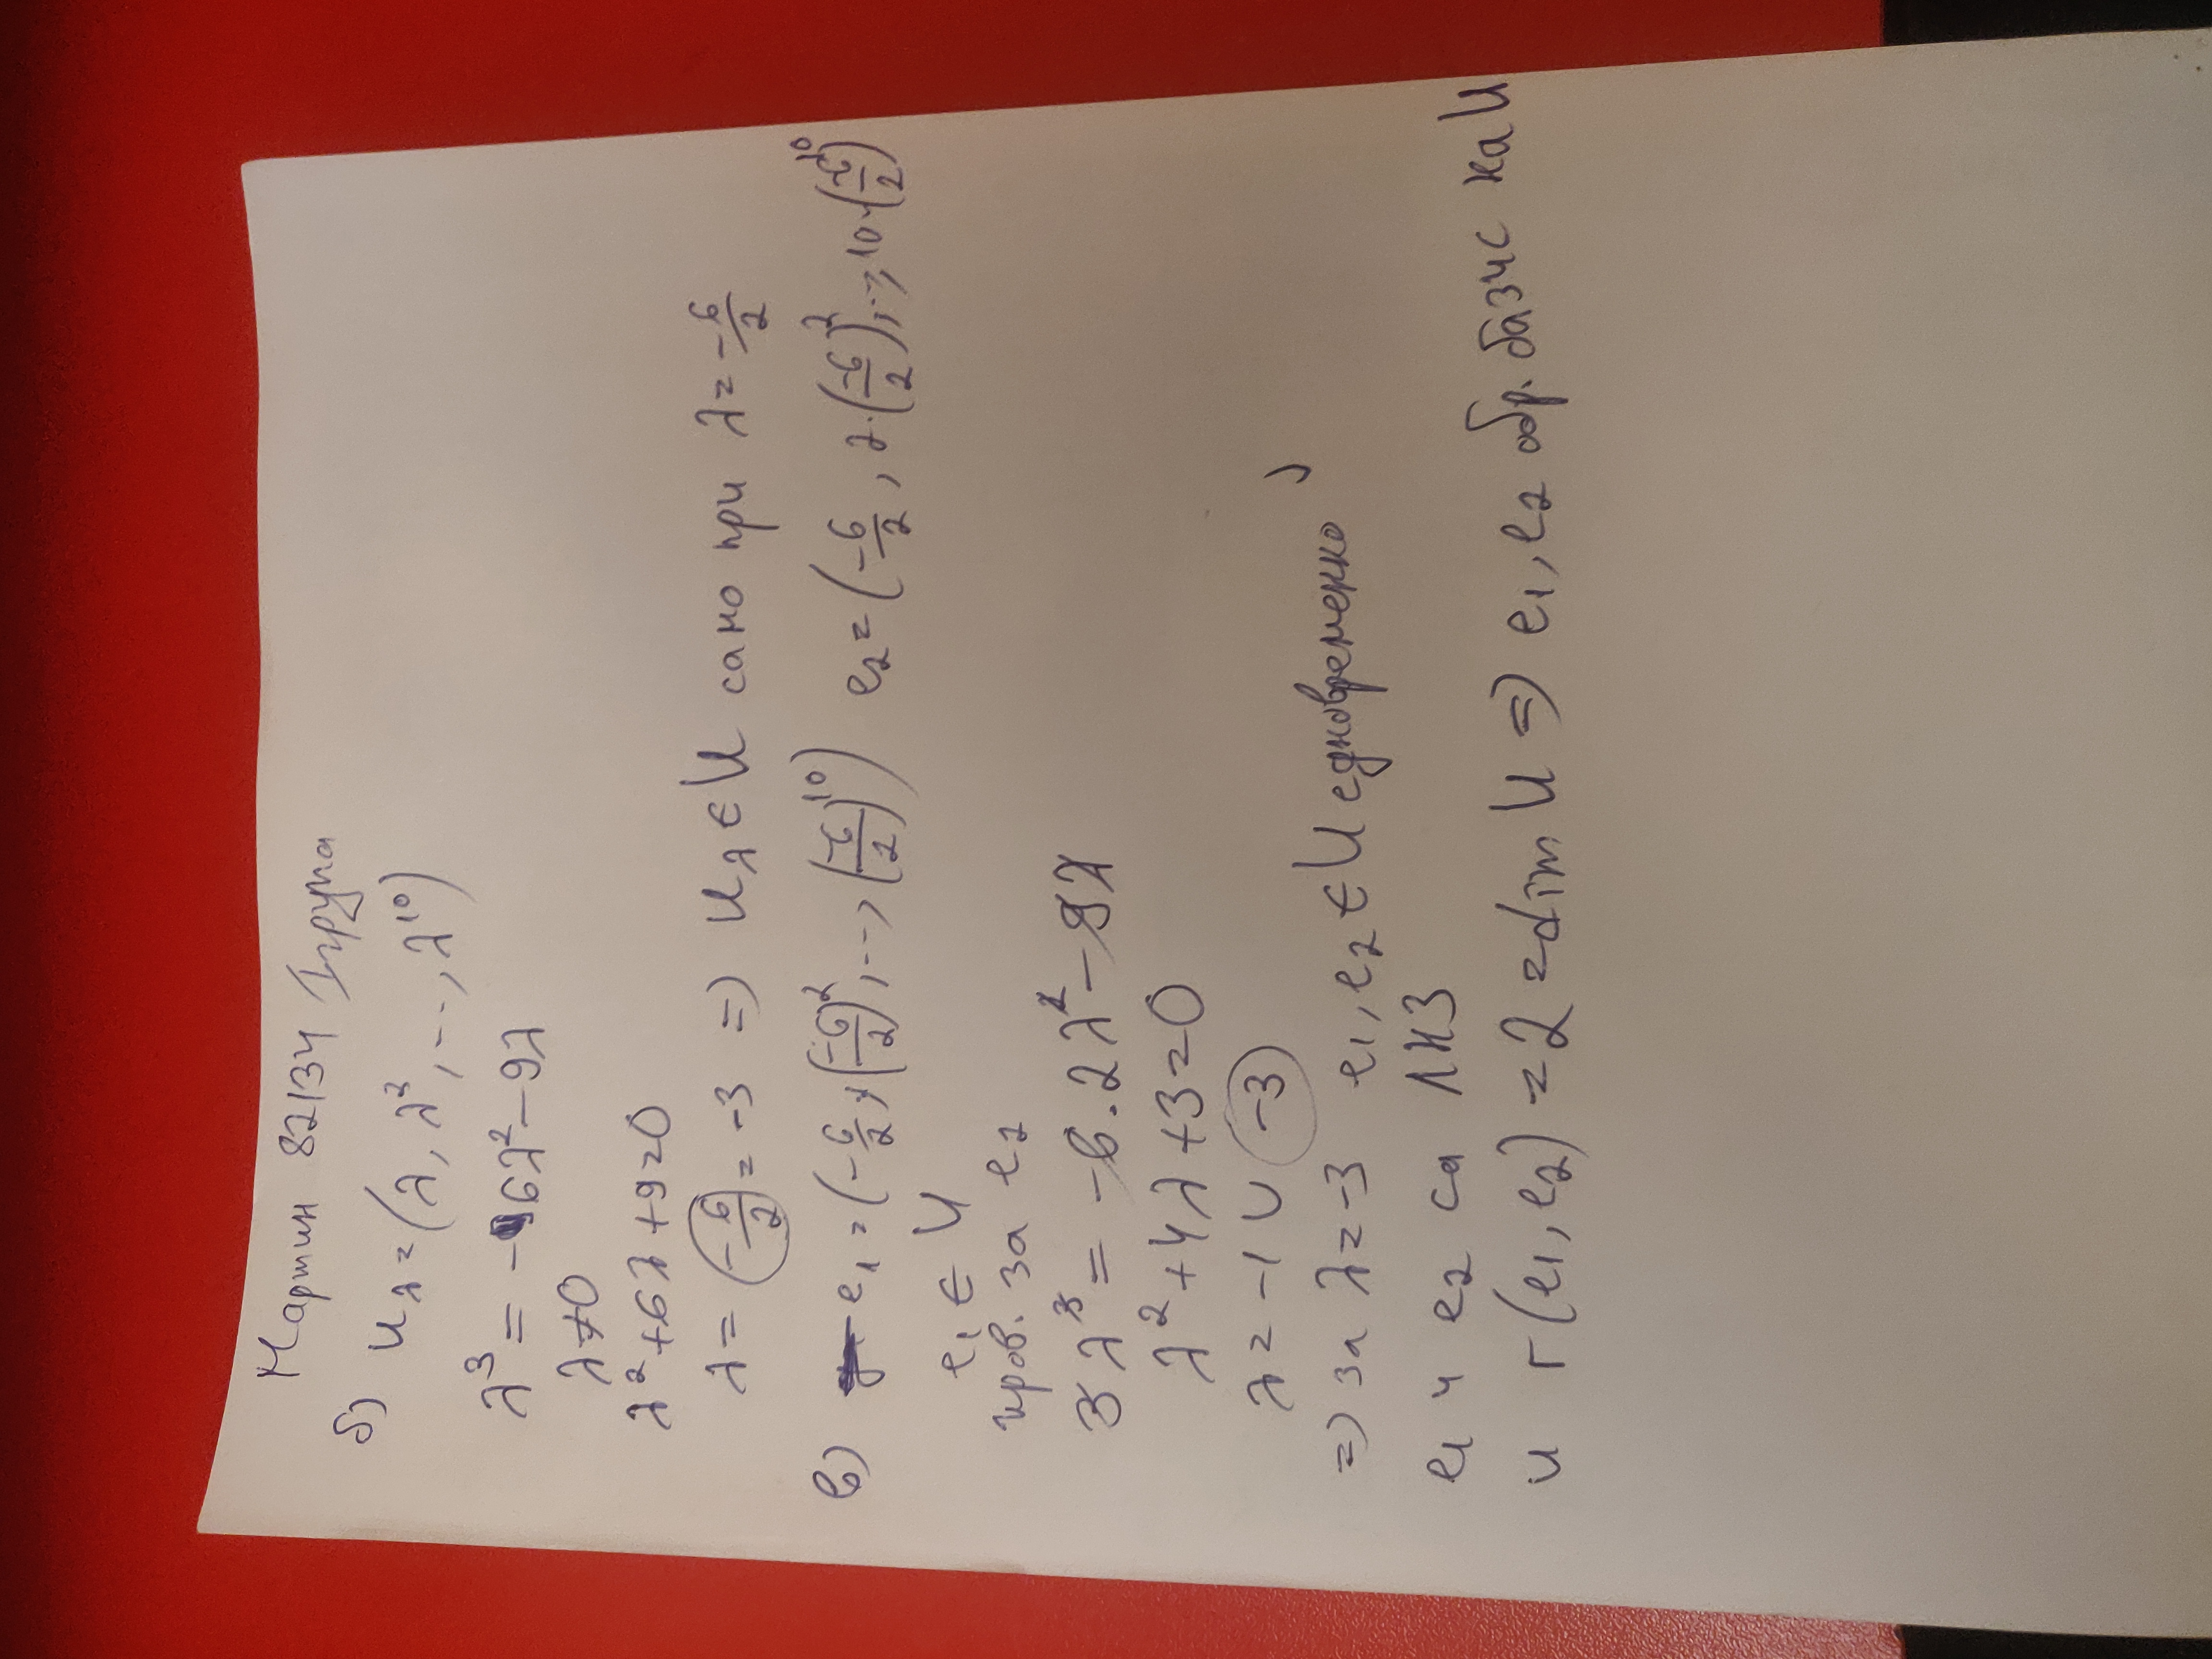 Мартин 82134 I група
б) u_λ = (λ, λ², ..., λ¹⁰)
λ³ = -6λ² - 9λ
λ ≠ 0
λ² + 6λ + 9 = 0
λ = -6/2 = -3 => u_λ ∈ U само при λ = -6/2
в) e₁ = (-6/2, (-6/2)², ..., (-6/2)¹⁰) e₂ = (-6/2, 2.(-6/2)², ..., 10.(-6/2)¹⁰)
e₁ ∈ U
пров. за e₂
3λ³ = -6.2λ² - 9λ
λ² + 4λ + 3 = 0
λ = -1 ∪ -3
=> за λ = -3 e₁, e₂ ∈ U едновременно
e₁ и e₂ са ЛНЗ
и r(e₁, e₂) = 2 = dim U => e₁, e₂ обр. базис на U